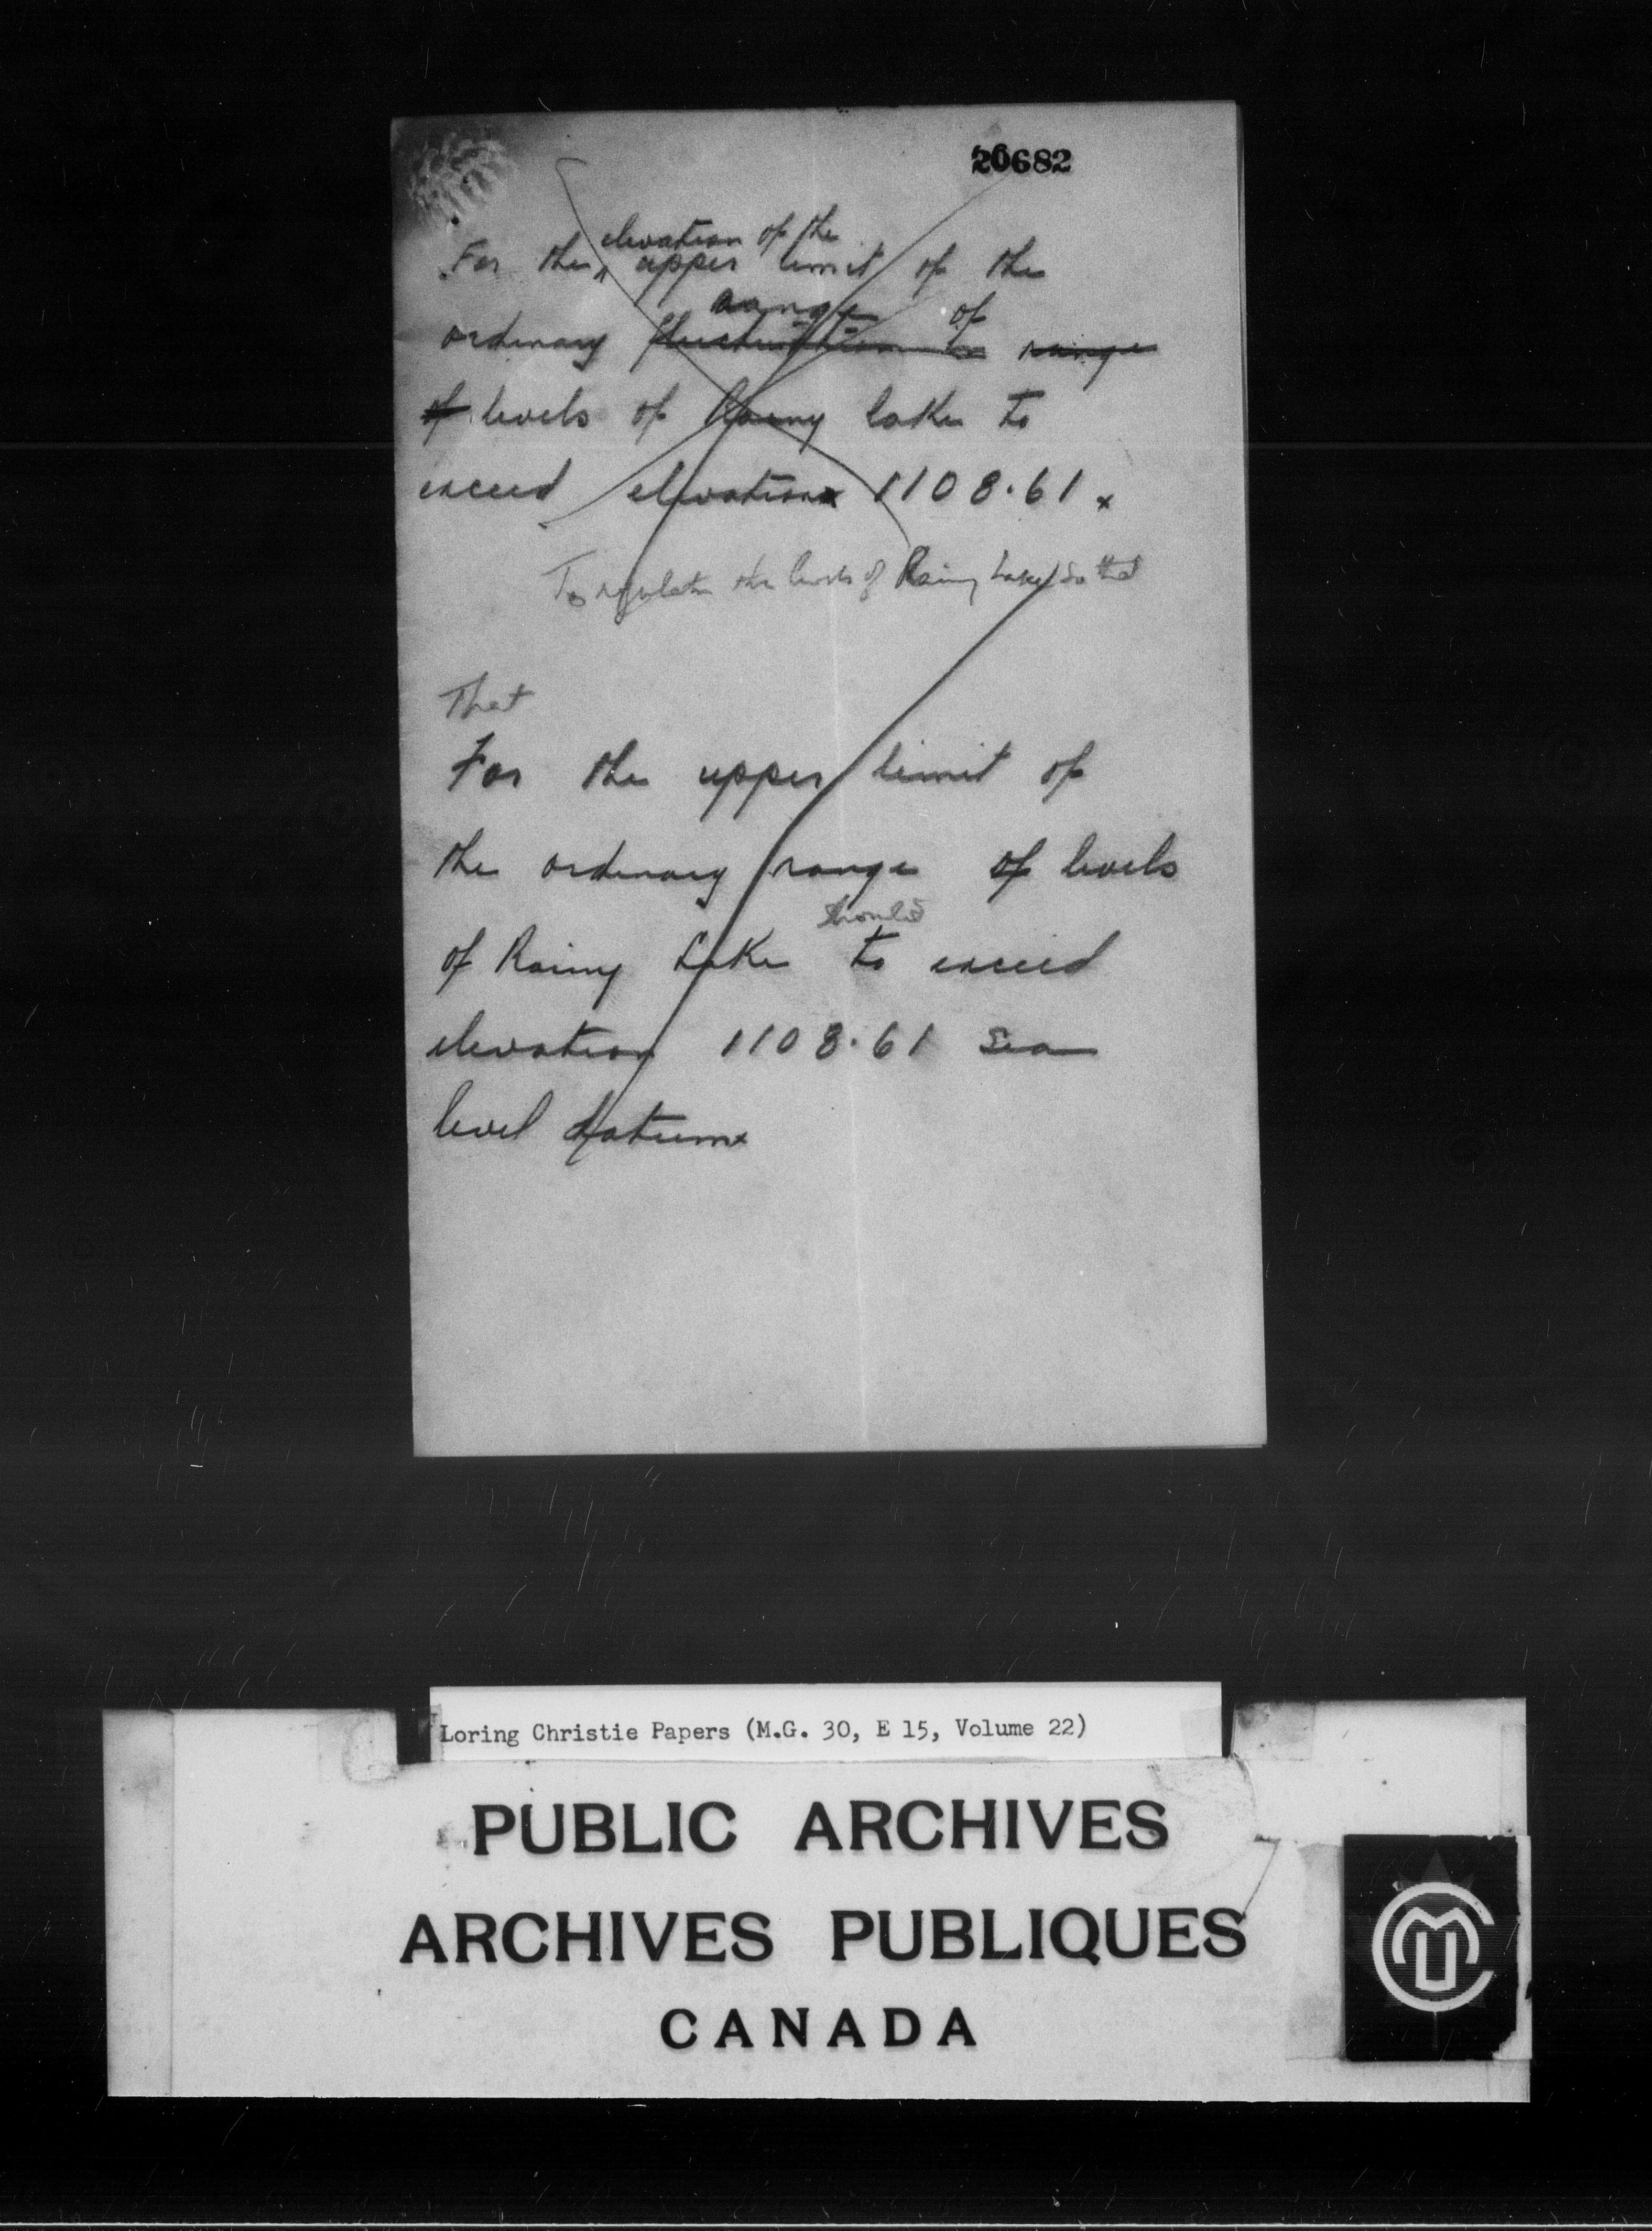 20682
elevation of the
For the ^ upper limit of the
range of
ordinary fluctuation in range
of levels of Rainy Lake to
exceed elevation 1108.61 x
To regulate the levels of Rainy Lake so that
That
For the upper limit of
the ordinary range of levels
should
of Rainy Lake to exceed
elevation 1108.61 Sea
level datum x
Loring Christie Papers (M.G. 30, E 15, Volume 22)
PUBLIC ARCHIVES
ARCHIVES PUBLIQUES
CANADA